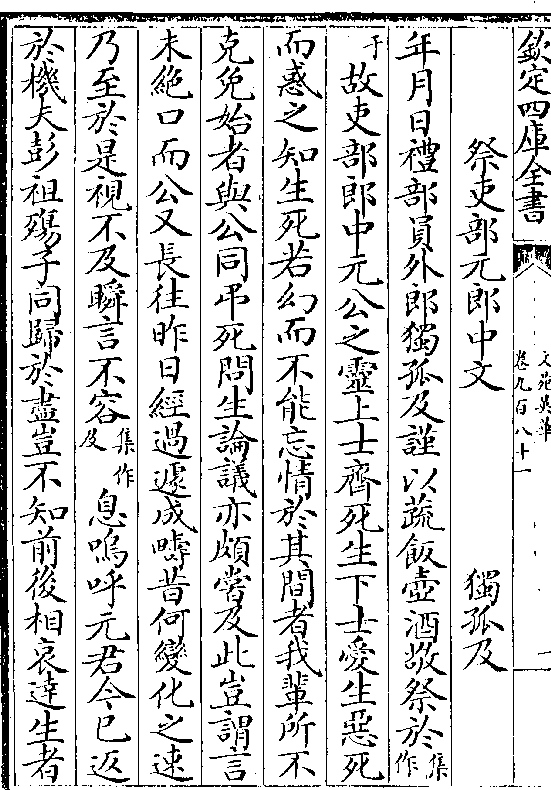 欽定四庫全書
文苑英華
卷九百八十一
祭吏部元郎中文 獨孤及
年月日禮部員外郎獨孤及謹以蔬飯壺酒敬祭於集作
于故吏部郎中元公之靈上士齊死生下士愛生惡死
而惑之知生死若幻而不能忘情於其間者我輩所不
克免始者與公同弔死問生論議亦頗嘗及此豈謂言
未絶口而公又長往昨日經過遽成疇昔何變化之速
乃至於是視不及瞬言不容集作及息嗚呼元君今已返
於機夫彭祖殤子同歸於盡豈不知前後相哀達生者